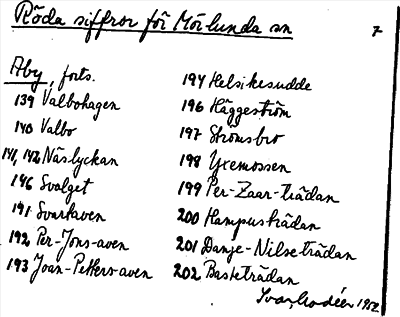 Röda siffror för Mörlunda sn
7
Åby, forts.
139 Valbohagen
140 Valbo
141, 142 Näslyckan
146 Svalget
191 Svartaven
192 Per-Jons-aven
193 Joan-Petters-aven
194 Helsikesudde
196 Häggeström
197 Strömsbro
198 Yxemossen
199 Per-Zaar-trädan
200 Hampusträdan
201 Danje-Nilseträdan
202 Basteträdan
Ivar 1952